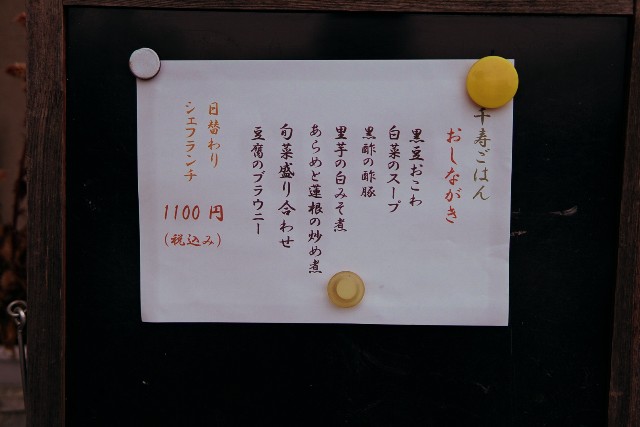 千寿ごはん
おしながき
黒豆おこわ
白菜のスープ
黒酢の酢豚
里芋の白みそ煮
あらめと蓮根の炒め煮
旬菜盛り合わせ
豆腐のブラウニー
日替わり
シェフランチ
1100 円
(税込み)